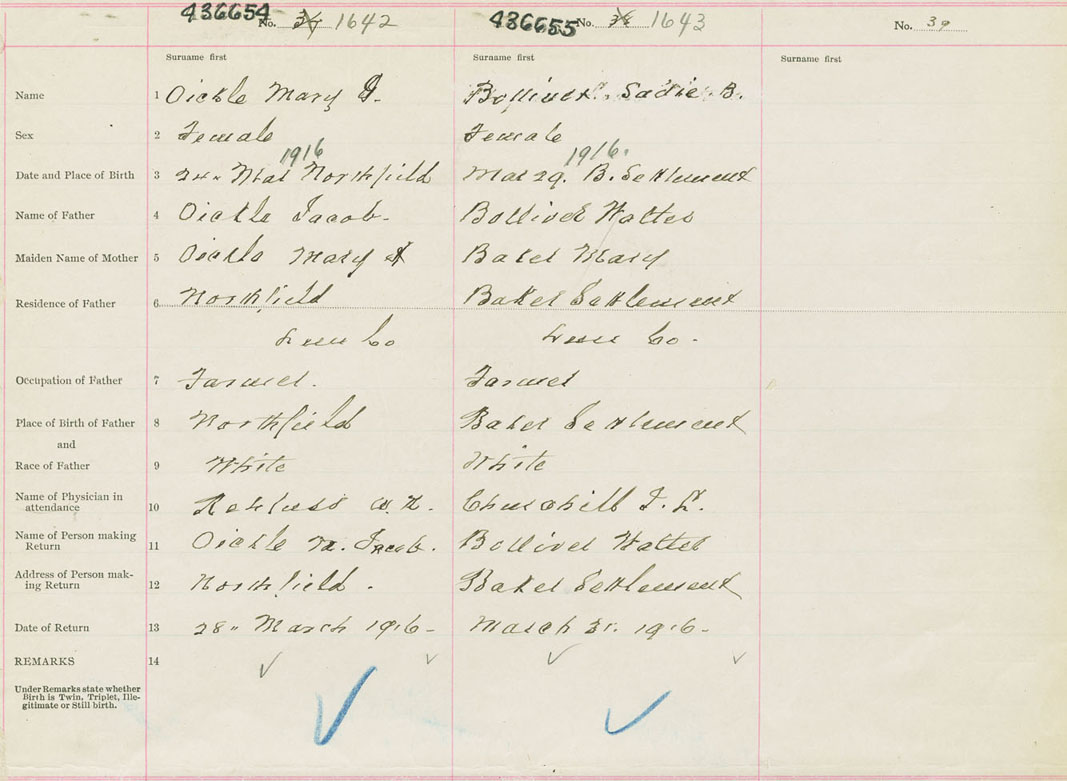 436654 No. 37 1642 436655 No. 38 1643 No. 39
Surname first Surname first Surname first
Name 1 Oickle Mary Bolliver. Sadie B.
Sex 2 Female Female
1916 1916.
Date and Place of Birth 3 24" Mar Northfield Mar 29. B. Settlement
Name of Father 4 Oickle Jacob. Bolliver Walter
Maiden Name of Mother 5 Oickle Mary Baker Mary
Residence of Father 6 Northfield Baker Settlement
Lun Co Lun Co.
Occupation of Father 7 Farmer. Farmer
Place of Birth of Father 8 Northfield Baker Settlement
and
Race of Father 9 White White
Name of Physician in
attendance 10 Churchill
Name of Person making
Return 11 Oickle Jacob. Bolliver Walter
Address of Person mak-
ing Return 12 Northfield. Baker Settlement
Date of Return 13 28" March 1916- March 31. 1916-
REMARKS 14
Under Remarks state whether
Birth is Twin, Triplet, Ille-
gitimate or Still birth.